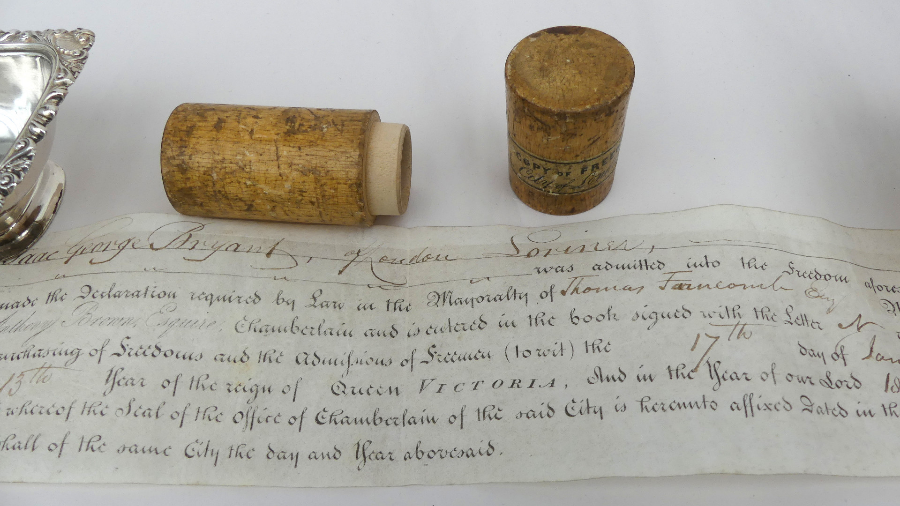 COPY OF FREE
City of
Isaac George Bryant, of London Loriner,
was admitted into the Freedom afores
made the Declaration required by Law in the Mayoralty of Thomas Farncomb Esqr
thony Brown Esquire, Chamberlain and is entered in the book signed with the Letter N
urchasing of Freedoms and the Admissions of Freemen (to wit) the 17th day of Jan
13th Year of the reign of Queen VICTORIA, And in the Year of our Lord 18
whereof the Seal of the Office of Chamberlain of the said City is hereunto affixed Dated in th
hall of the same City the day and Year abovesaid.